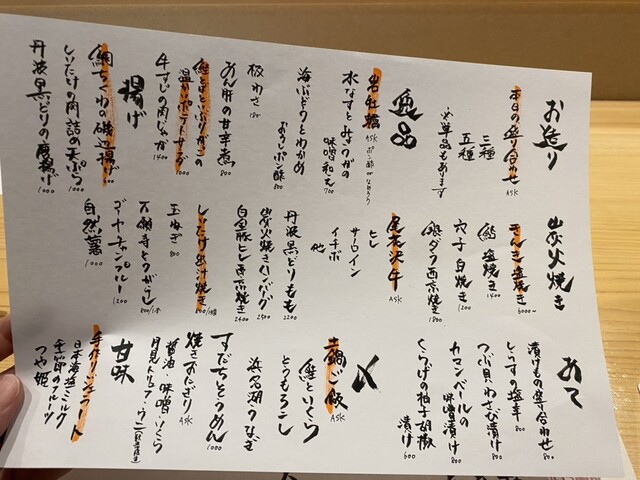 お造り
本日の盛り合わせ ASK
三種
五種
※単品もあります
逸品
岩牡蠣 ASK
水なすとみょうがの
味噌和え 700
海ぶどうとわかめ
おろしポン酢 800
板わさ
あん肝の甘辛煮 800
鮭とほとぶりがっこの
温かいポテトサラダ 800
牛すじの肉じゃが 1400
揚げ
鯛ちくわの磯辺揚げ
しいたけの肉詰め天ぷら 1000
丹波黒どりの唐揚げ 1000
炭火焼き
きんき塩焼き 6000〜
鮎 塩焼き 1400
穴子白焼き 1200
銀ダラ西京焼き 1800
尾花沢牛 ASK
ヒレ
サーロイン
イチボ
他
丹波黒どりもも 2200
炭火焼きハンバーグ 2500
白金豚ヒレ西京焼き 2400
しいたけ出汁焼き
玉ねぎ 800
万願寺とうがらし
ゴーヤーチャンプルー 1200
自然薯 1000
あて
漬けもの盛り合わせ 800
しらすの塩辛 800
つぶ貝わさび漬け 800
カマンベールの
味噌漬け 800
くらげの柚子胡椒
漬け 600
〆
土鍋ご飯 ASK
鮭といくら
とうもろこし
浜名湖うなぎ
すだちそうめん 1000
焼きおにぎり ASK
醤油・味噌・いくら
月見・トリュフ・ウニ
甘味
手作りジェラート
日本海塩ミルク
季節のフルーツ
つや姫